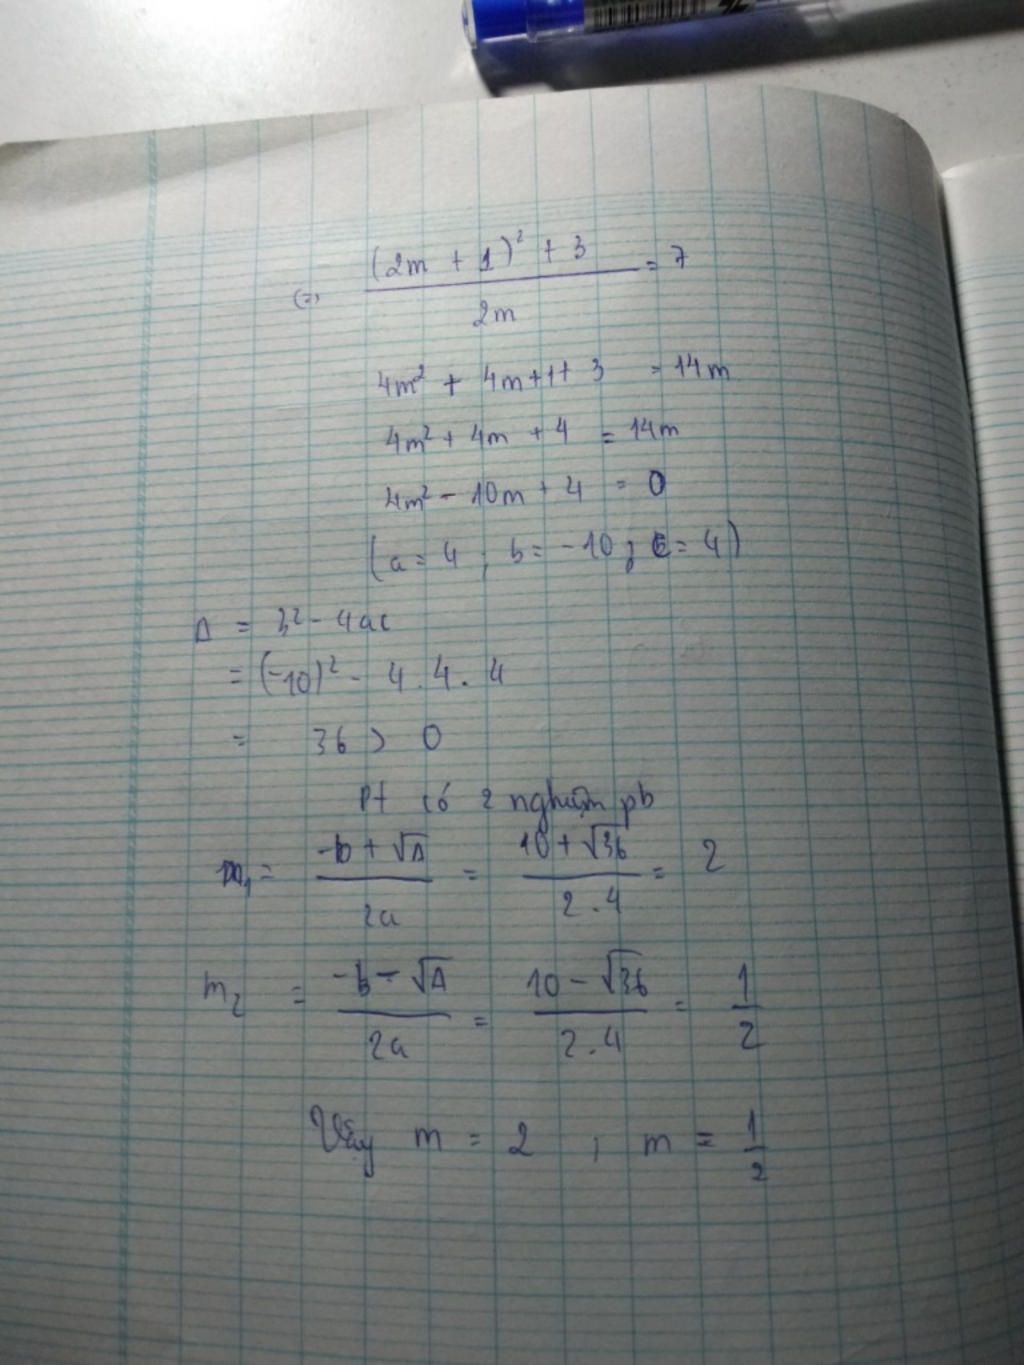 (=) \frac{(2m + 1)^2 + 3}{2m} = 7
4m² + 4m+1+ 3 = 14m
4m² + 4m + 4 = 14m
4m² - 10m + 4 = 0
(a = 4 ; b = -10 ; c = 4)
Δ = b² - 4ac
= (-10)² - 4.4.4
= 36 > 0
Pt có 2 nghiệm pb
m₁ = \frac{-b + √Δ}{2a} = \frac{10 + √36}{2.4} = 2
m₂ = \frac{-b - √Δ}{2a} = \frac{10 - √36}{2.4} = \frac{1}{2}
Vậy m = 2 ; m = \frac{1}{2}